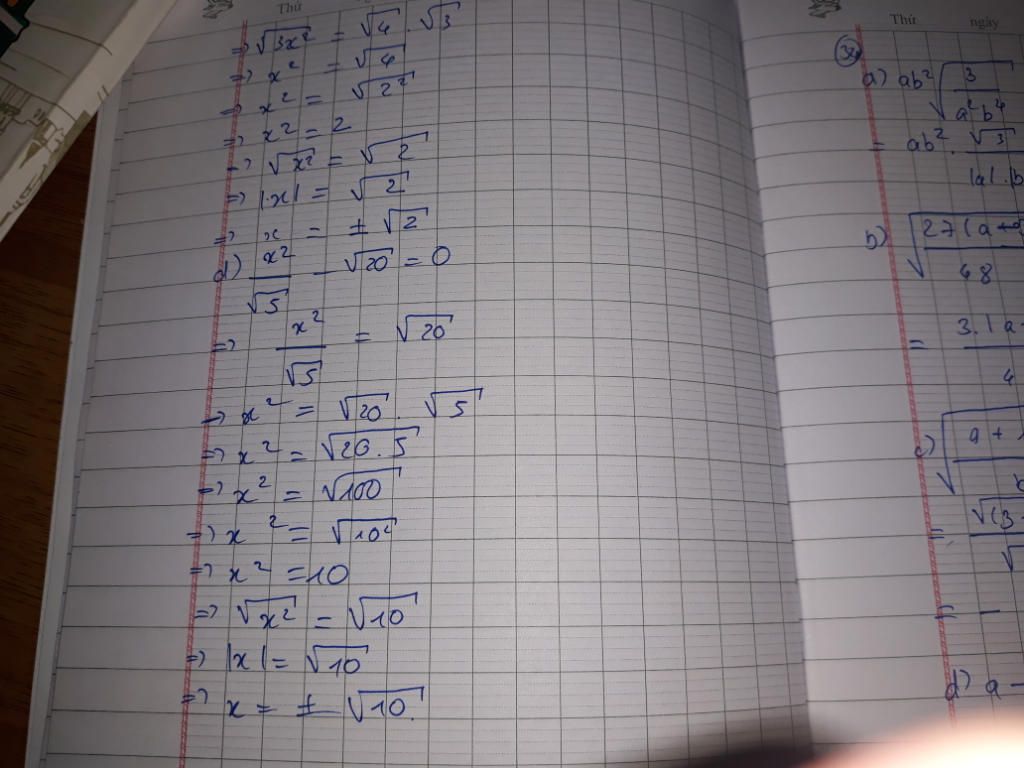 Thứ
=> √3x² = √4 . √3
=> x² = √4
=> x² = √2²
=> x² = 2
=> √x² = √2
=> |x| = √2
=> x = ± √2
d) x²/√5 - √20 = 0
=> x²/√5 = √20
=> x² = √20 . √5
=> x² = √20.5
=> x² = √100
=> x² = √10²
=> x² = 10
=> √x² = √10
=> |x| = √10
=> x = ± √10.
Thứ ngày
a) ab² √3/a²b⁴
= ab² . √3/|a|.|b
b) √27(a
48
= 3.|a -
4
c) √a +
b
= √(3
√
= -
d) a -